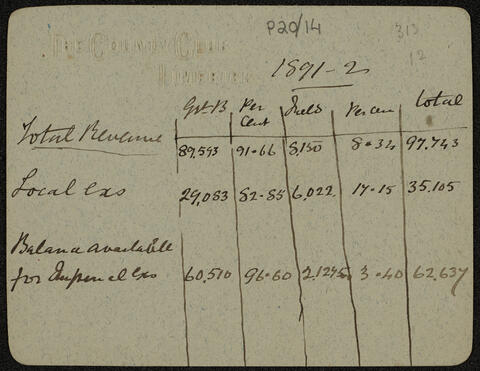 P20/14
THE COUNTY CLUB
LIMERICK
313
12
1891-2
Gt. B Per Cent Ireld Per cen total
Total Revenue 89,593 91.66 8,150 8.34 97.743
Local exs 29,083 82.85 6,022 17.15 35.105
Balance available
for Imperial exs 60,510 96.60 3.40 62,637